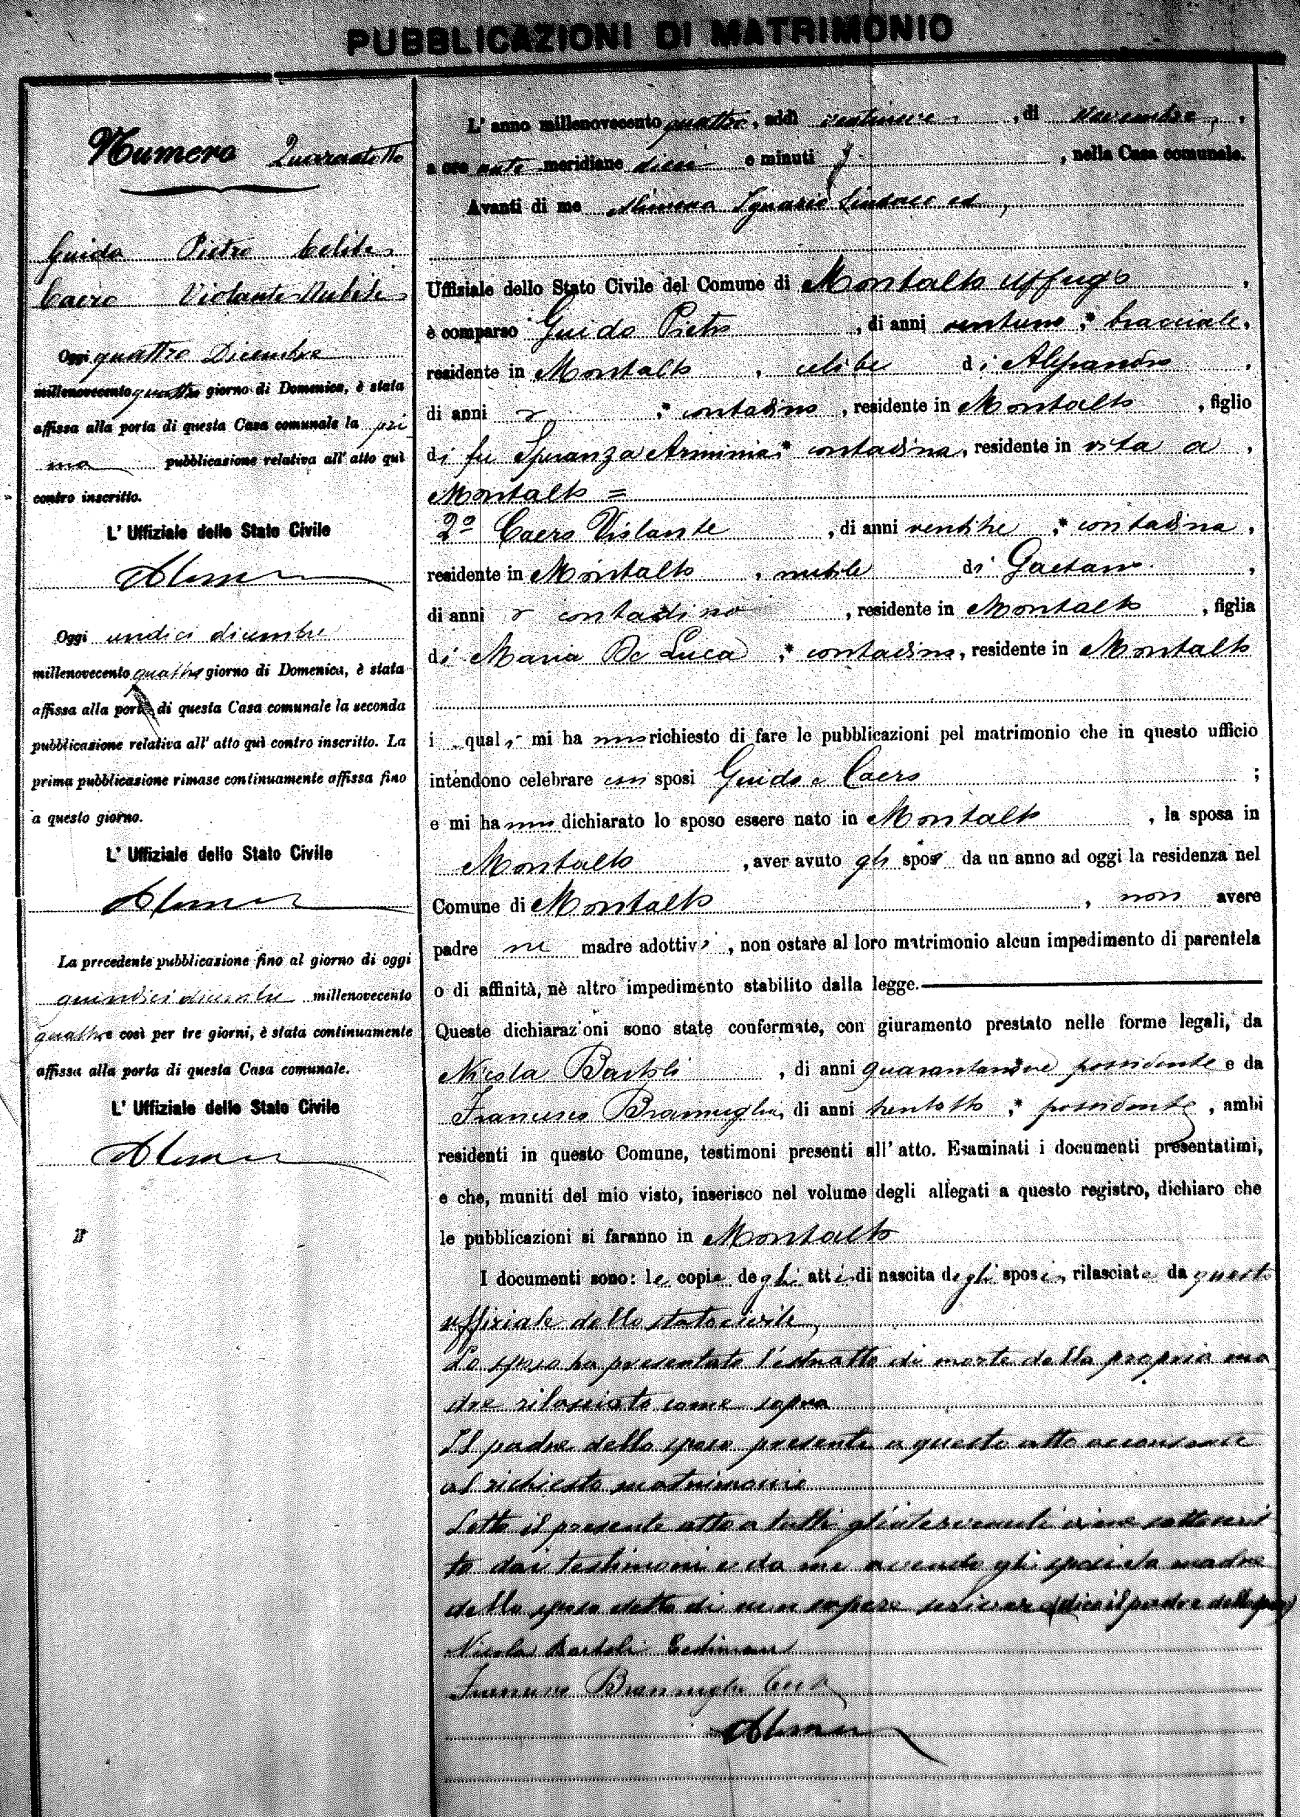 PUBBLICAZIONI DI MATRIMONIO
Numero Quarantotto
Guido Pietro Celibe
Caero Violante Nubile
Oggi quattro Dicembre
millenovecento quattro giorno di Domenica, è stata
affissa alla porta di questa Casa comunale la pri
ma pubblicazione relativa all' atto quì
contro inscritto.
L' Uffiziale dello Stato Civile
Oggi undici dicembre
millenovecento quattro giorno di Domenica, è stata
affissa alla porta di questa Casa comunale la seconda
pubblicazione relativa all' atto quì contro inscritto. La
prima pubblicazione rimase continuamente affissa fino
a questo giorno.
L' Uffiziale dello Stato Civile
La precedente pubblicazione fino al giorno di oggi
quindici dicembre millenovecento
quattro e così per tre giorni, è stata continuamente
affissa alla porta di questa Casa comunale.
L' Uffiziale dello Stato Civile
L' anno millenovecento quattro, addì ventinove, di Novembre,
a ore ante meridiane dieci e minuti , nella Casa comunale.
Avanti di me Ignazio Sindaco ed
Uffiziale dello Stato Civile del Comune di Montalto Uffugo,
è comparso Guido Pietro, di anni ventuno,* bracciale,
residente in Montalto, celibe di Alessandro,
di anni ,* contadino, residente in Montalto, figlio
di fu Speranza Arminia,* contadina, residente in vita a,
Montalto =
2º Caero Violante, di anni ventitre,* contadina,
residente in Montalto, nubile di Gaetano,
di anni contadino, residente in Montalto, figlia
di Maria De Luca,* contadina, residente in Montalto
i quali mi hanno richiesto di fare le pubblicazioni pel matrimonio che in questo ufficio
intendono celebrare essi sposi Guido e Caero ;
e mi hanno dichiarato lo sposo essere nato in Montalto, la sposa in
Montalto, aver avuto gli sposi da un anno ad oggi la residenza nel
Comune di Montalto, non avere
padre nè madre adottivi, non ostare al loro matrimonio alcun impedimento di parentela
o di affinità, nè altro impedimento stabilito dalla legge.
Queste dichiarazioni sono state confermate, con giuramento prestato nelle forme legali, da
Nicola Bartoli, di anni quarantanove* possidente e da
Francesco Bramuglia, di anni trentotto,* possidente, ambi
residenti in questo Comune, testimoni presenti all' atto. Esaminati i documenti presentatimi,
e che, muniti del mio visto, inserisco nel volume degli allegati a questo registro, dichiaro che
le pubblicazioni si faranno in Montalto
I documenti sono: le copie degli atti di nascita degli sposi, rilasciate da questo
uffiziale dello stato civile,
Lo sposo ha presentato l'estratto di morte della propria ma
dre rilasciato come sopra
Il padre dello sposo presente a questo atto acconsente
al richiesto matrimonio
Letto il presente atto a tutti gl'intervenuti viene sottoscrit
to dai testimoni e da me avendo gli sposi e la madre
dello sposo detto di non sapere scrivere (dico il padre dello sposo)
Nicola Bartoli Testimone
Francesco Bramuglia Test